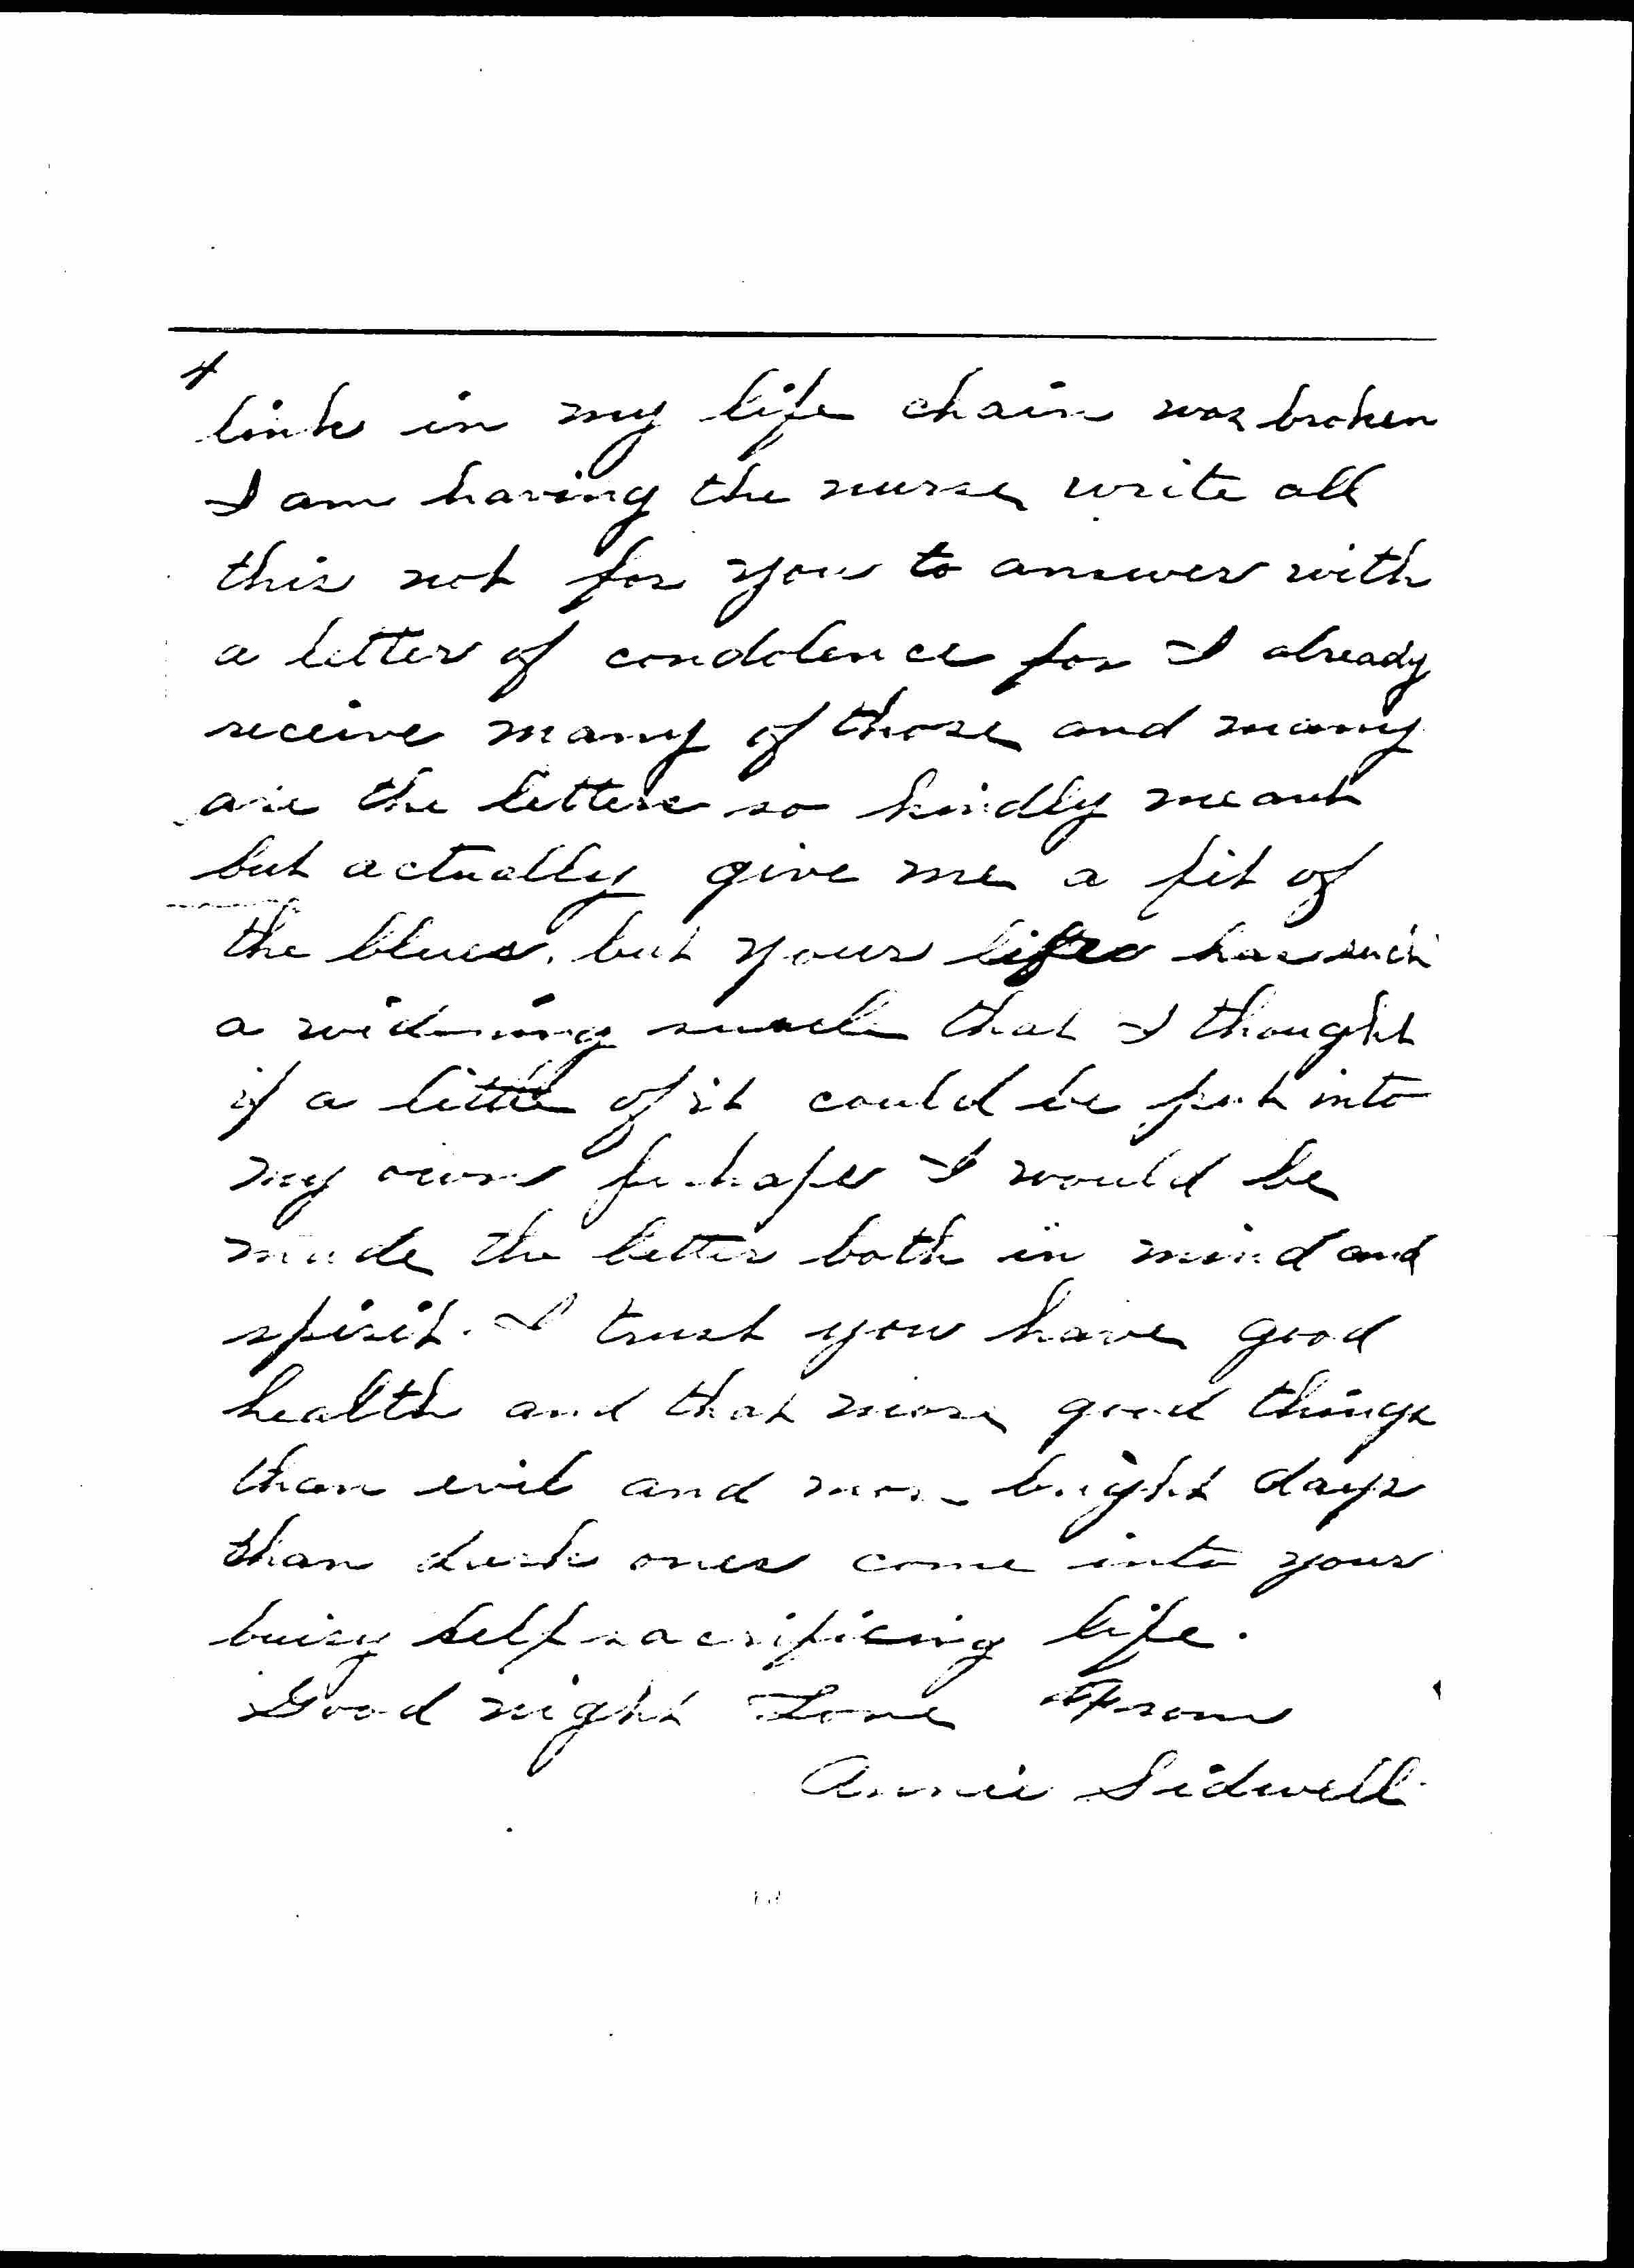 4
link in my life chain was broken
I am having the nurse write all
this not for you to answer with
a letter of condolence for I already
receive many of those and many
are the letters so kindly meant
but actually give me a fit of
the blues. but your life has such
a widening that I thought
if a little of it could be put into
my own perhaps I would be
made the better both in mind and
spirit. I trust you have good
health and that more good things
than evil and more bright days
than dark ones come into your
buisy self sacrificing life.
Good night Love From
Annie Sidwell